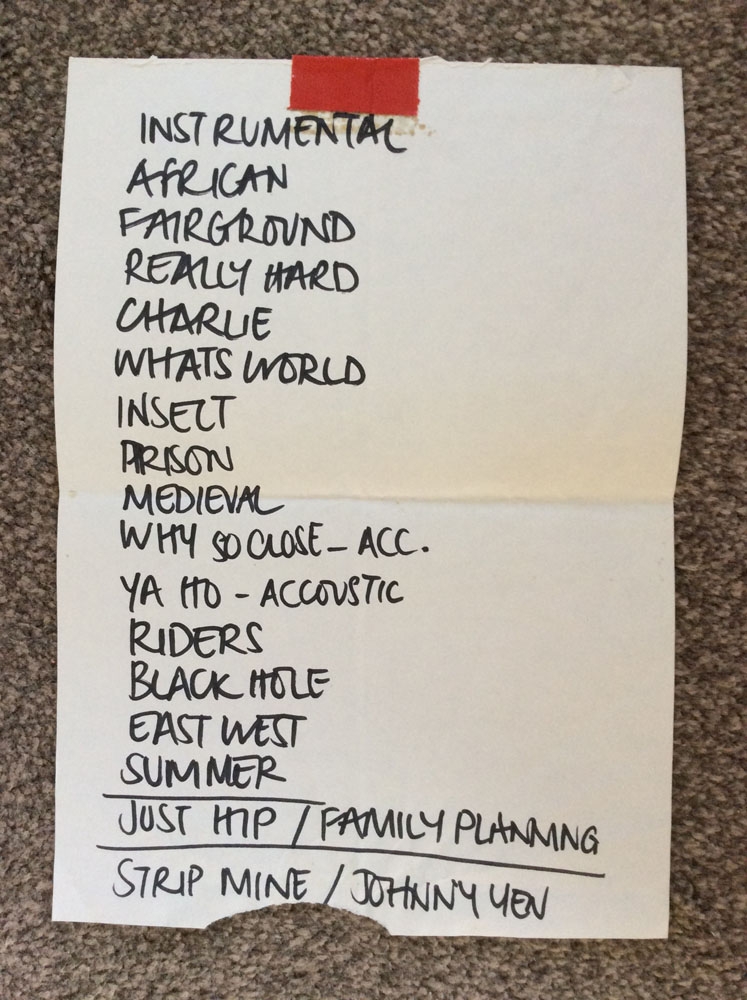 INSTRUMENTAL
AFRICAN
FAIRGROUND
REALLY HARD
CHARLIE
WHATS WORLD
INSECT
PRISON
MEDIEVAL
WHY SO CLOSE - ACC.
YA HO - ACCOUSTIC
RIDERS
BLACK HOLE
EAST WEST
SUMMER
JUST HIP / FAMILY PLANNING
STRIP MINE / JOHNNY YEN